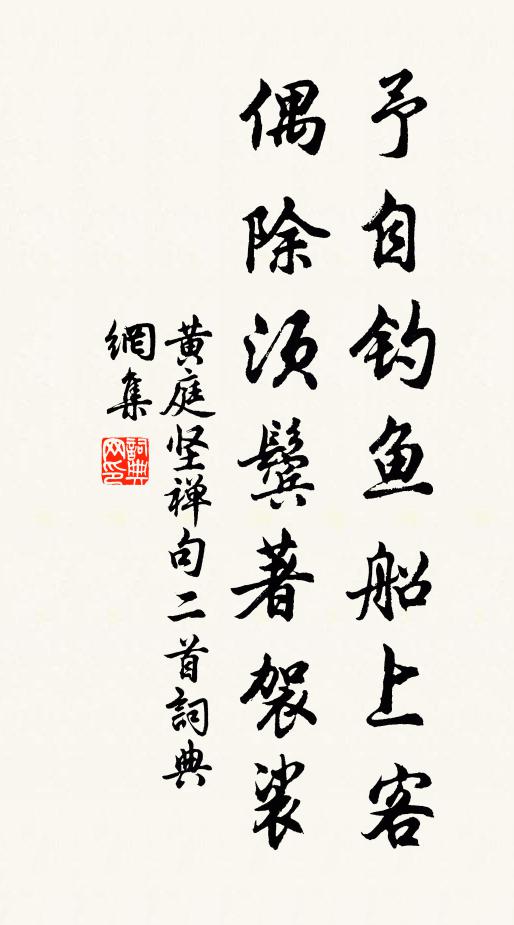 予自钓鱼船上客
偶除须鬓著袈裟
黄庭坚禅句二首詞典
網集
詞典
网印